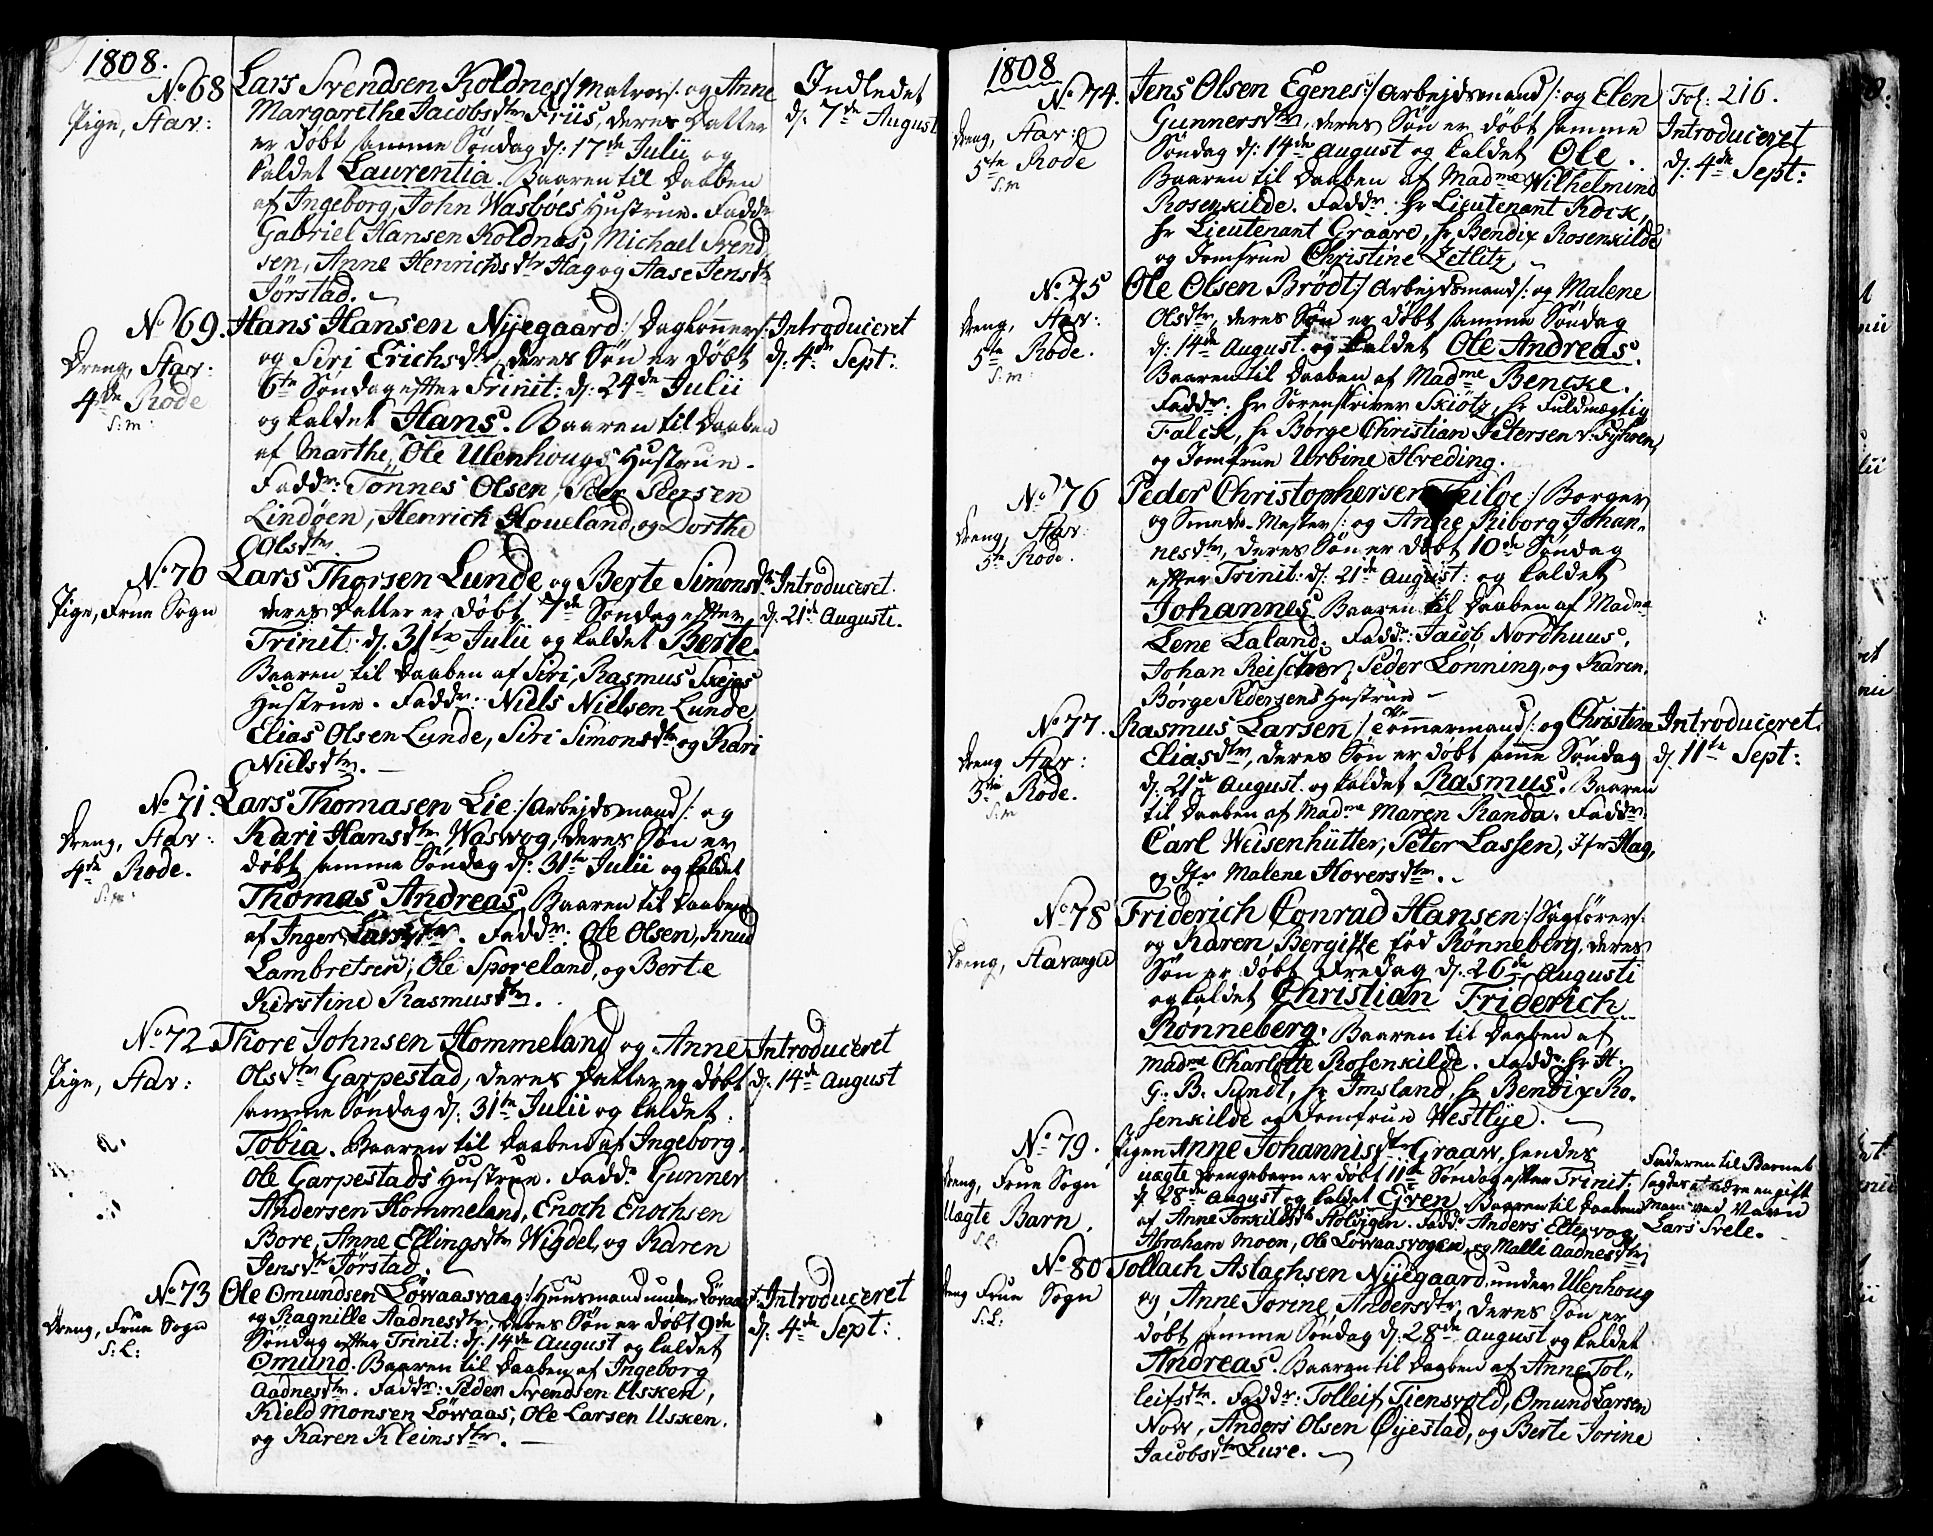 1808.
No 68 Lars Svendsen Koldnes /: Matros :/ og Anne Indledet
Pige, Stav: Margarethe Jacobsdtr Friis, deres Datter d: 7de August
er døbt samme Søndag d: 17de Julii og
kaldet Laurentia. Baaren til Daaben
af Ingeborg, John Wasboes Hustrue. Faddr
Gabriel Hansen Koldnas, Michael Svend
sen, Anne Henrichsdtr Hag og Aase Jensdtr
Jørstad.
No 69. Hans Hansen Nyegaard /: Daglønner :/ Introduceret
Dreng, Stav: og Siri Erichsdtr, deres Søn er døbt d: 4de Sept:
4de Rode 6te Søndag efter Trinit: d: 24de Julii
S: m: og kaldet Hans. Baaren til Daaben
af Marthe, Ole Ulenhougs Hustrue.
Faddr: Tønnes Olsen, Peer Peersen
Lindøen, Henrich Houeland, og Dorthe
Olsdtr.
No 70 Lars Thorsen Lunde og Berte Simonsdtr Introduceret.
Pige, Frue Sogn deres Datter er døbt 7de Søndag efter d: 21de Augusti.
Trinit: d: 31te Julii og kaldet Berte.
Baaren til Daaben af Siri, Rasmus Skejes
Hustrue. Faddr: Niels Nielsen Lunde,
Elias Olsen Lunde, Siri Simonsdtr og Kari
Nielsdtr.
No 71. Lars Thomasen Lie /: Arbejdsmand :/ og
Dreng, Stav: Kari Hansdtr Waswog, deres Søn er
4de Rode. døbt samme Søndag d: 31te Julii og kaldet
S: m: Thomas Andreas. Baaren til Daaben
af Inger Larsdtr. Faddr: Ole Olsen, Knud
Lambretsen, Ole Sporeland, og Berte
Kirstine Rasmusdtr.
No 72 Thore Johnsen Hommeland og Anne Introduceret
Pige, Stav: Olsdtr Garpestad, deres Datter er døbt d: 14de August
samme Søndag d: 31te Julii og kaldet
Tobia. Baaren til Daaben af Ingeborg,
Ole Garpestads Hustrue. Faddr Gunner
Andersen Hommeland, Enoch Enochsen
Bore, Anne Ellingsdtr Wigdel, og Karen
Jensdtr Jørstad.
No 73 Ole Omundsen Løwaasvaag /: Huusmand under Løwaas :/ Introduceret
Dreng, Frue Sogn og Ragnille Aadnesdtr, deres Søn er døbt 9de d: 4de Sept:
S: L: Søndag efter Trinit: d: 14de August og kaldet
Omund. Baaren til Daaben af Ingeborg
Aadnesdtr. Faddr: Peder Svendsen Usken,
Kield Monsen Løwaas, Ole Larsen Usken.
og Karen Kleinsdtr.
1808
No 74. Jens Olsen Egenes /: Arbejdsmand :/ og Elen Fol: 216.
Dreng, Stav: Gunnersdtr, deres Søn er døbt samme Introduceret
5te Rode Søndag d: 14de August og kaldet Ole. d: 4de Sept:
S: m Baaren til Daaben af Madme Wilhelmine
Rosenkilde. Faddr: Hr Lieutenant Kock,
Hr Lieutenant Graare, Hr Bendix Rosenkilde
og Jomfrue Christine Zetlitz.
No 75 Ole Olsen Brødt /: Arbejdsmand :/ og Malene
Dreng, Stav: Olsdtr, deres Søn er døbt samme Søndag
5te Rode. d: 14de August og kaldet Ole Andreas.
S: m: Baaren til Daaben af Madme Bencke.
Faddr: Hr Sorenskriver Skiøtz, Hr Fuldmægtig
Falck, Hr Børge Christian Petersen
og Jomfrue Urbine Hreding.
No 76 Peder Christophersen Thiloe /: Borger
Dreng, Stav: og Smede-Mester :/ og Anne Riborg Johan-
5te Rode. nesdtr, deres Søn er døbt 10de Søndag
efter Trinit: d: 21de August: og kaldet
Johannes. Baaren til Daaben af Madme
Lene Laland. Faddr: Jacob Nordhuus,
Johan Reischer, Peder Lønning, og Karen,
Børge Pedersens Hustrue
No 77. Rasmus Larsen /: Tømmermand :/ og Christine Introduceret.
Dreng Stav: Eliasdtr, deres Søn er døbt same Søndag d: 11te Sept:
3die Rode. d: 21de August og kaldet Rasmus. Baaren
S: m til Daaben af Madme Maren Randa. Faddr:
Carl Weisenhütter, Peter Lassen, Jfr Hag,
og Jfr Malene Hoversdtr.
No 78 Friderich Conrad Hansen /: Sagfører :/
Dreng, Stavanger og Karen Bergitte fød Rønneberg, deres
Søn er døbt Fredag d: 26de Augusti
og kaldet Christian Friderich
Rønneberg. Baaren til Daaben af
Madme Charlotte Rosenkilde. Faddr: Hr H:
G: B: Sundt, Hr Imsland, Hr Bendix Ro-
senkilde og Jomfrue Westlye.
No 79. Pigen Anne Johannisdtr Graaw, hendes Faderen til Barnet
Dreng, Frue Sogn uægte Drengebarn er døbt 11te Søndag efter Trinit: sagdes at være en gift
Uægte Barn. d: 28de August og kaldet Even. Baaren til Daaben Mand ved Navn
S: L: af Anne Torkildsdtr. Faddr Anders Eltervog, Lars Svele.
Abraham Moen, Ole Løwaasvogen, og Malli Aadnesdtr
No 80 Tollach Aslachsen Nyegaard under Ulenhoug
Dreng Frue Sogn og Anne Jorine Andersdtr, deres Søn er
S: L: døbt samme Søndag d: 28de August og kaldet
Andreas. Baaren til Daaben af Anne Tol-
leifsdtr. Faddr: Tolleif Tiensvold, Omund Larsen
Now, Anders Olsen Øyestad, og Berte Jorine
Jacobsdtr Lure.